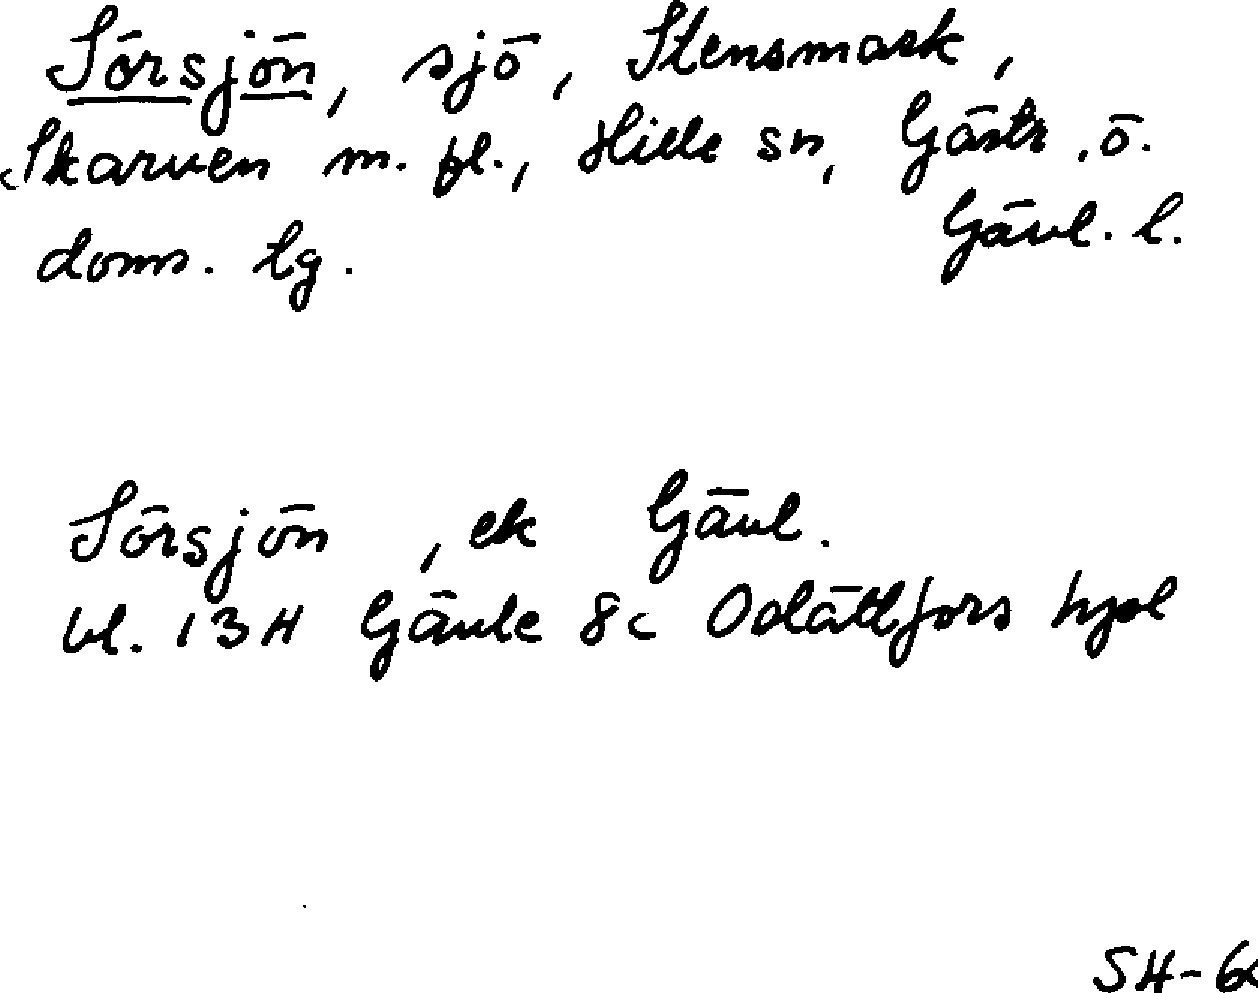 Sörsjön, sjö, Stensmark,
Skarven m. fl., Hille sn, Gästr. ö.
doms. tg. Gävl. l.
Sörsjön, ek Gävl.
bl. 13H Gävle 8c hpl
SH-6